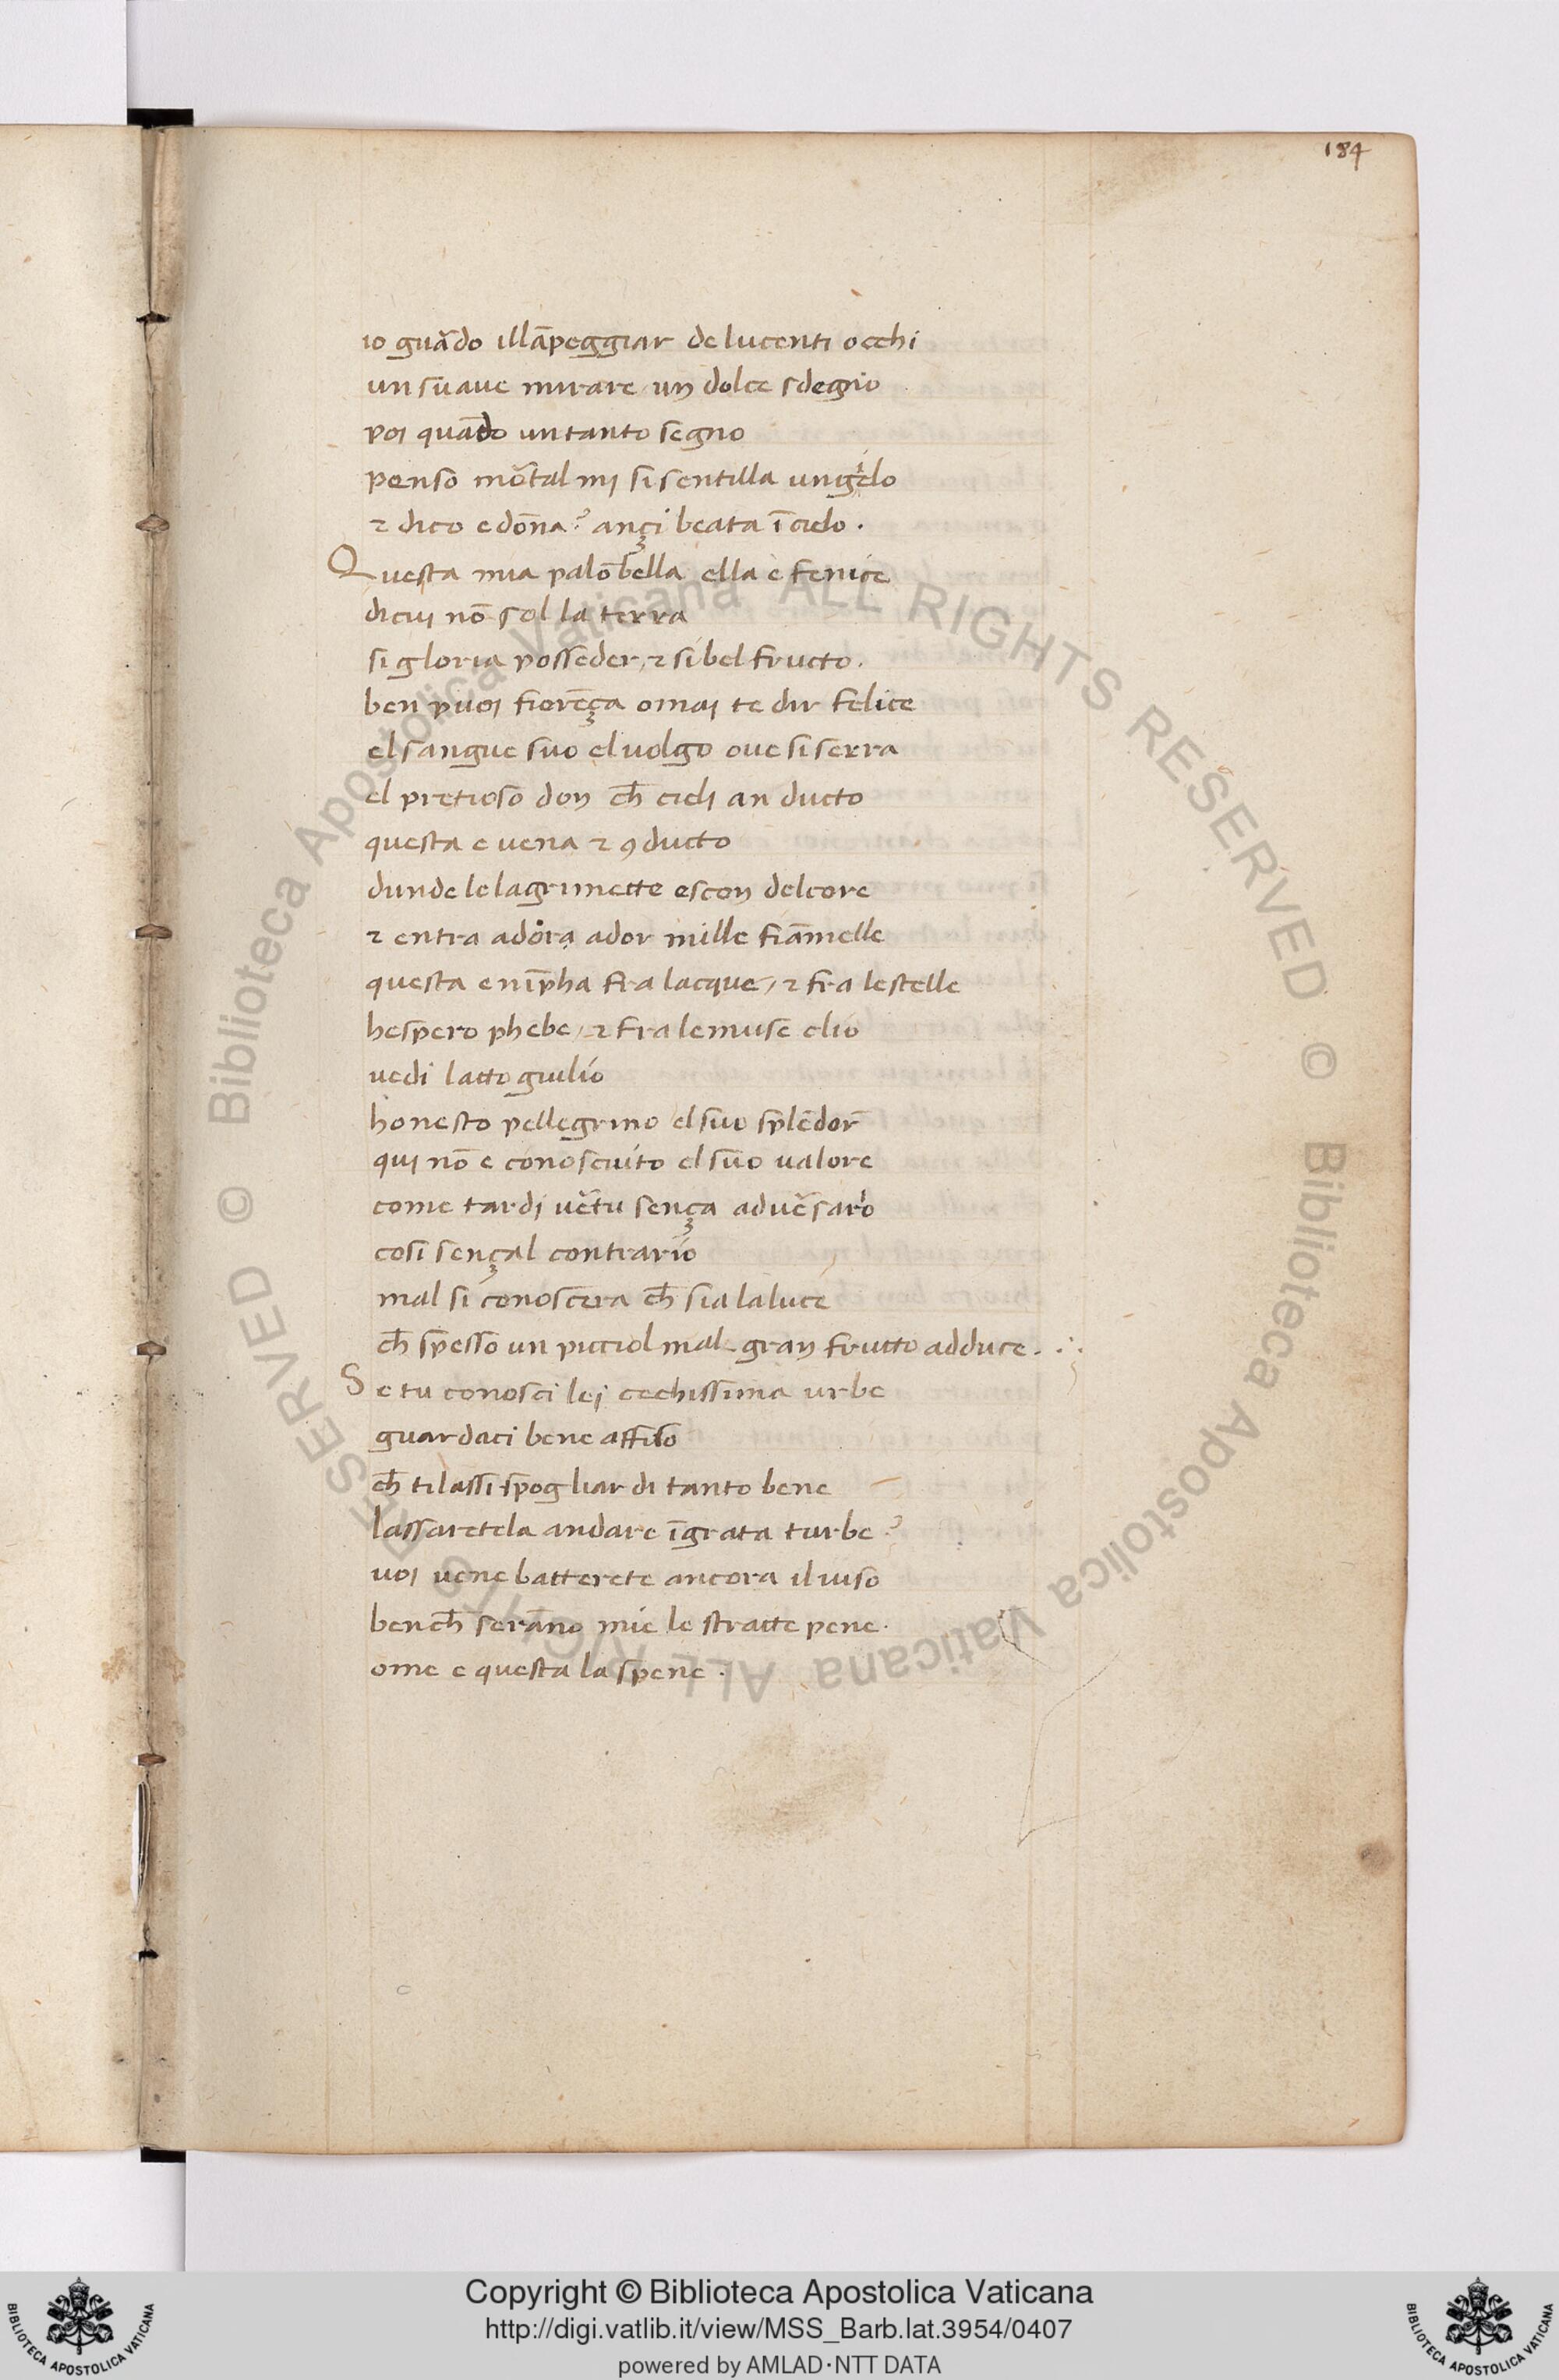 184
io guãdo illãpeggiar de lucenti occhi
un suave mirare un dolce sdegnio
poi quãdo un tanto segno
penso mortal mi si sentilla un gielo
⁊ dico e dõna? ançi beata ĩ cielo.
Questa mia palõbella ella e fenice
di cui nõ sol la terra
si gloria posseder, ⁊ si bel fructo.
ben puoi fiorẽça omai te dir felice
el sangue suo el uolgo oue si serra
el pretioso don ch̄ cieli an ducto
questa e uena ⁊ ꝯducto
dunde le lagrimette escon del core
⁊ entra ador a ador mille fiãmelle
questa e nĩpha fra lacque, ⁊ fra le stelle
hespero phebe, ⁊ fra le muse clio
uedi latto giulio
honesto pellegrino el suo splẽdor
qui nõ e conosciuto el suo ualore
come tardi uertu sença aduersario
cosi sençal contrario
mal si conoscera ch̄ sia la luce
ch̄ spesso un picciol mal gran frutto adduce.
Se tu conosci lei cechissima urbe
guardaci bene affiso
ch̄ ti lassi spogliar di tanto bene
lassaretela andare ĩgrata turbe?
uoi uene batterete ancora il uiso
bench̄ serãno mie le stratte pene.
ome e questa la spene.
© Biblioteca Apostolica Vaticana ALL RIGHTS RESERVED © Biblioteca Apostolica Vaticana ALL RIGHTS RESERVED
Copyright © Biblioteca Apostolica Vaticana
http://digi.vatlib.it/view/MSS_Barb.lat.3954/0407
powered by AMLAD·NTT DATA
BIBLIOTECA APOSTOLICA VATICANA
BIBLIOTECA APOSTOLICA VATICANA